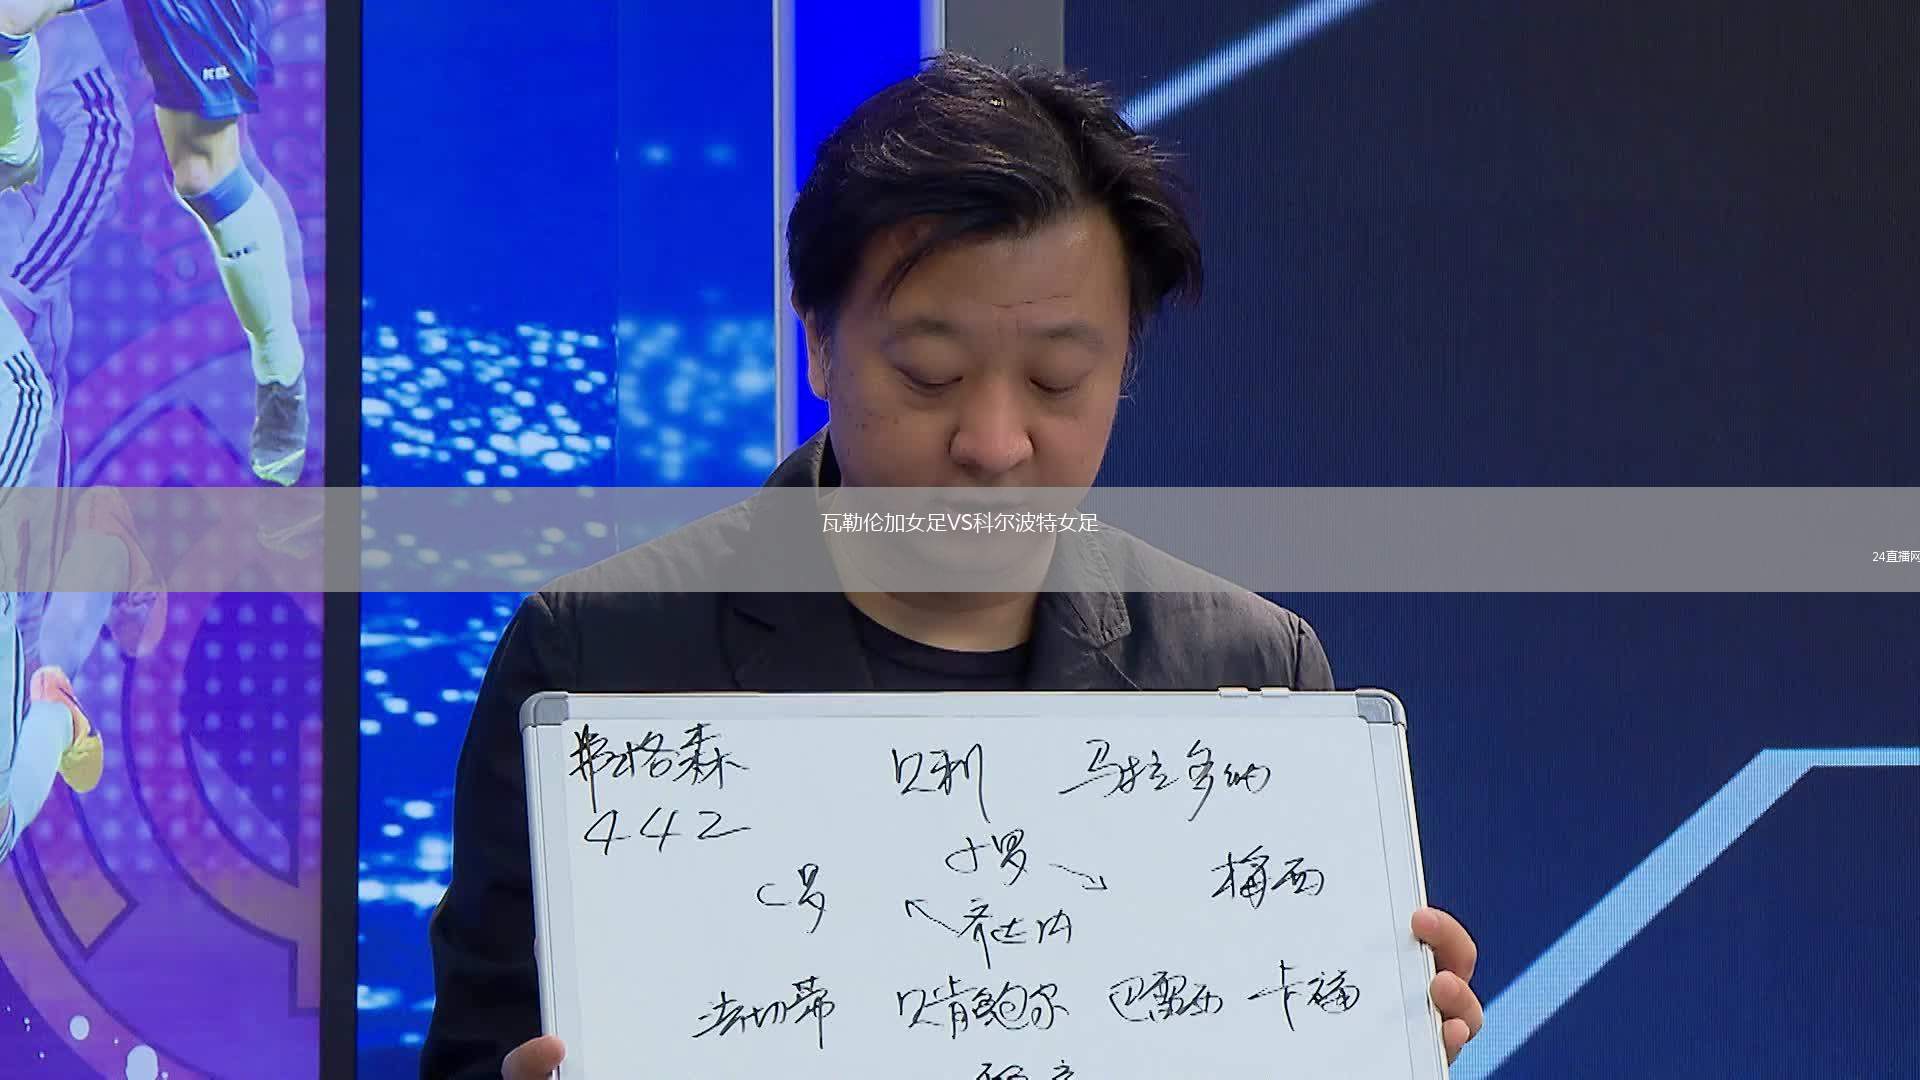 瓦勒伦加女足VS科尔波特女足
24直播网
弗格森 贝利 马拉多纳
442
小罗
C罗 梅西
齐达内
法切蒂 贝肯鲍尔 巴雷西 卡福